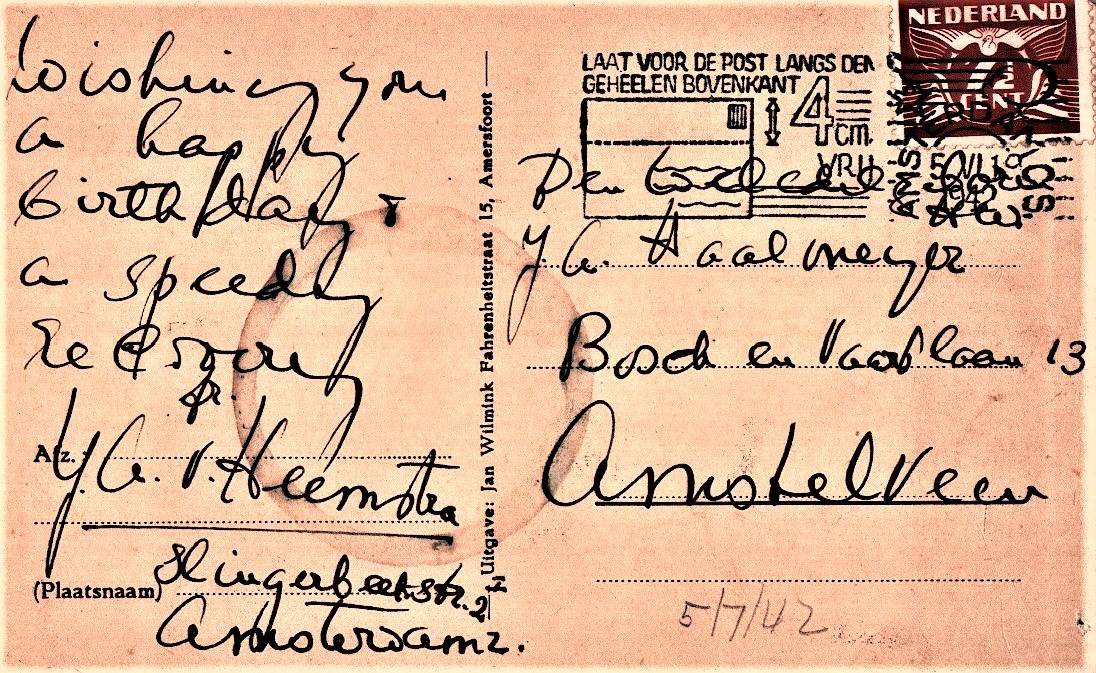 Wishing you
a happy
birthday &
a speedy
recovery
fr.
Afz.: Y. A. v. Heemstra
(Plaatsnaam) Slingerbeekstr. 2 I
Amsterdam Z.
Uitgave: Jan Wilmink Fahrenheitstraat 15, Amersfoort
NEDERLAND
7½
CENT
LAAT VOOR DE POST LANGS DEN
GEHEELEN BOVENKANT
4
cm.
VRIJ
AMSTERDAM
1942
Den
Y. A. Haalmeyer
Bosch en Vaartlaan 13
Amstelveen
5/7/42